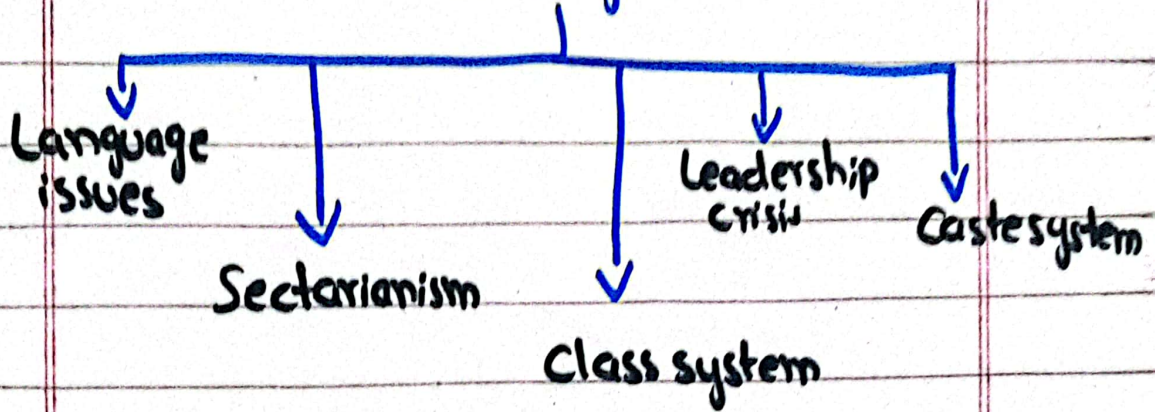 Language
issues
Sectarianism
Class system
Leadership
crisis
Caste system